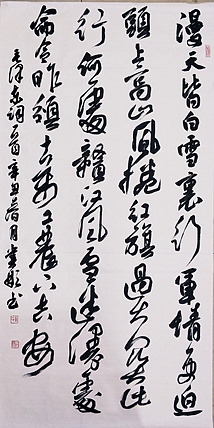 漫天皆白雪裏行軍情更迫
頭上高山風捲紅旗過大關此
行何去贛江風雪迷漫處
命令昨頒十萬工農下吉安
毛澤東詞一首辛丑春月書